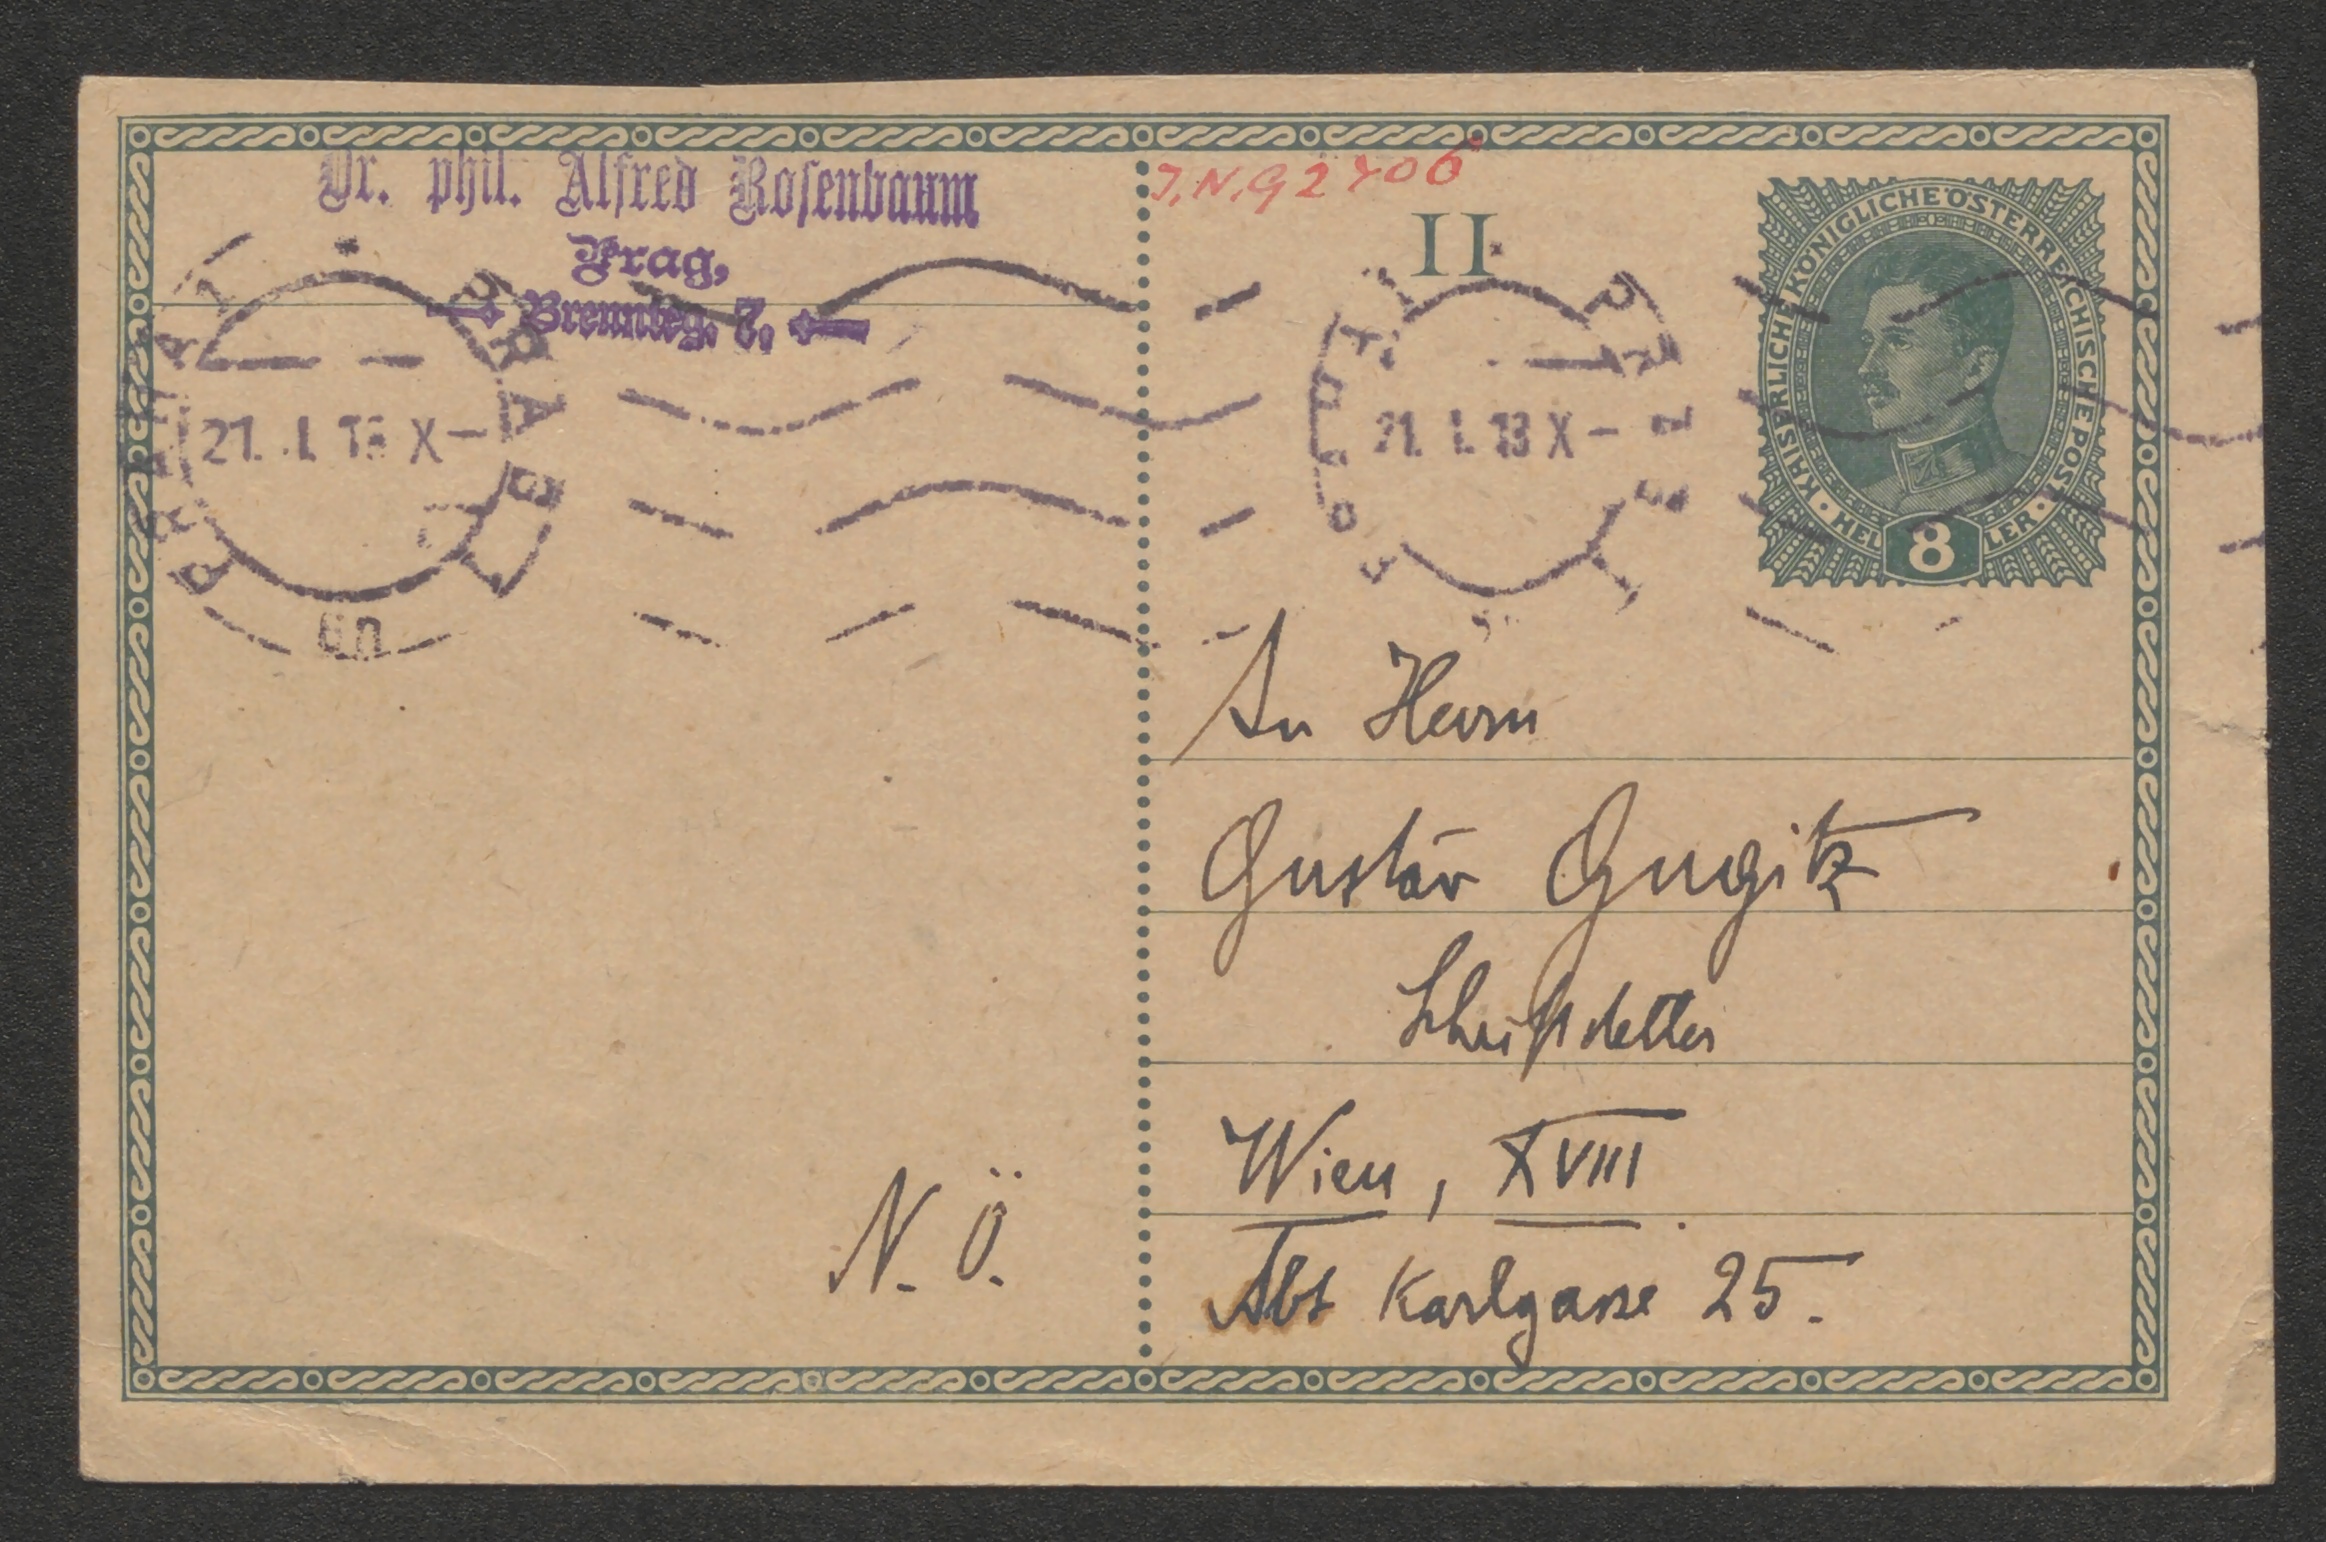 Dr. phil. Alfred Rosenbaum
Prag,
Brennteg. 7.
21. I. 18 X–
PRAG
J.N.G2406
II
21. I. 18 X–
KAISERLICHE KÖNIGLICHE ÖSTERREICHISCHE POST
HELLER
8
An Herrn
Gustav Gugitz
Schriftsteller
Wien, XVIII.
Abt Karlgasse 25.
N. Ö.